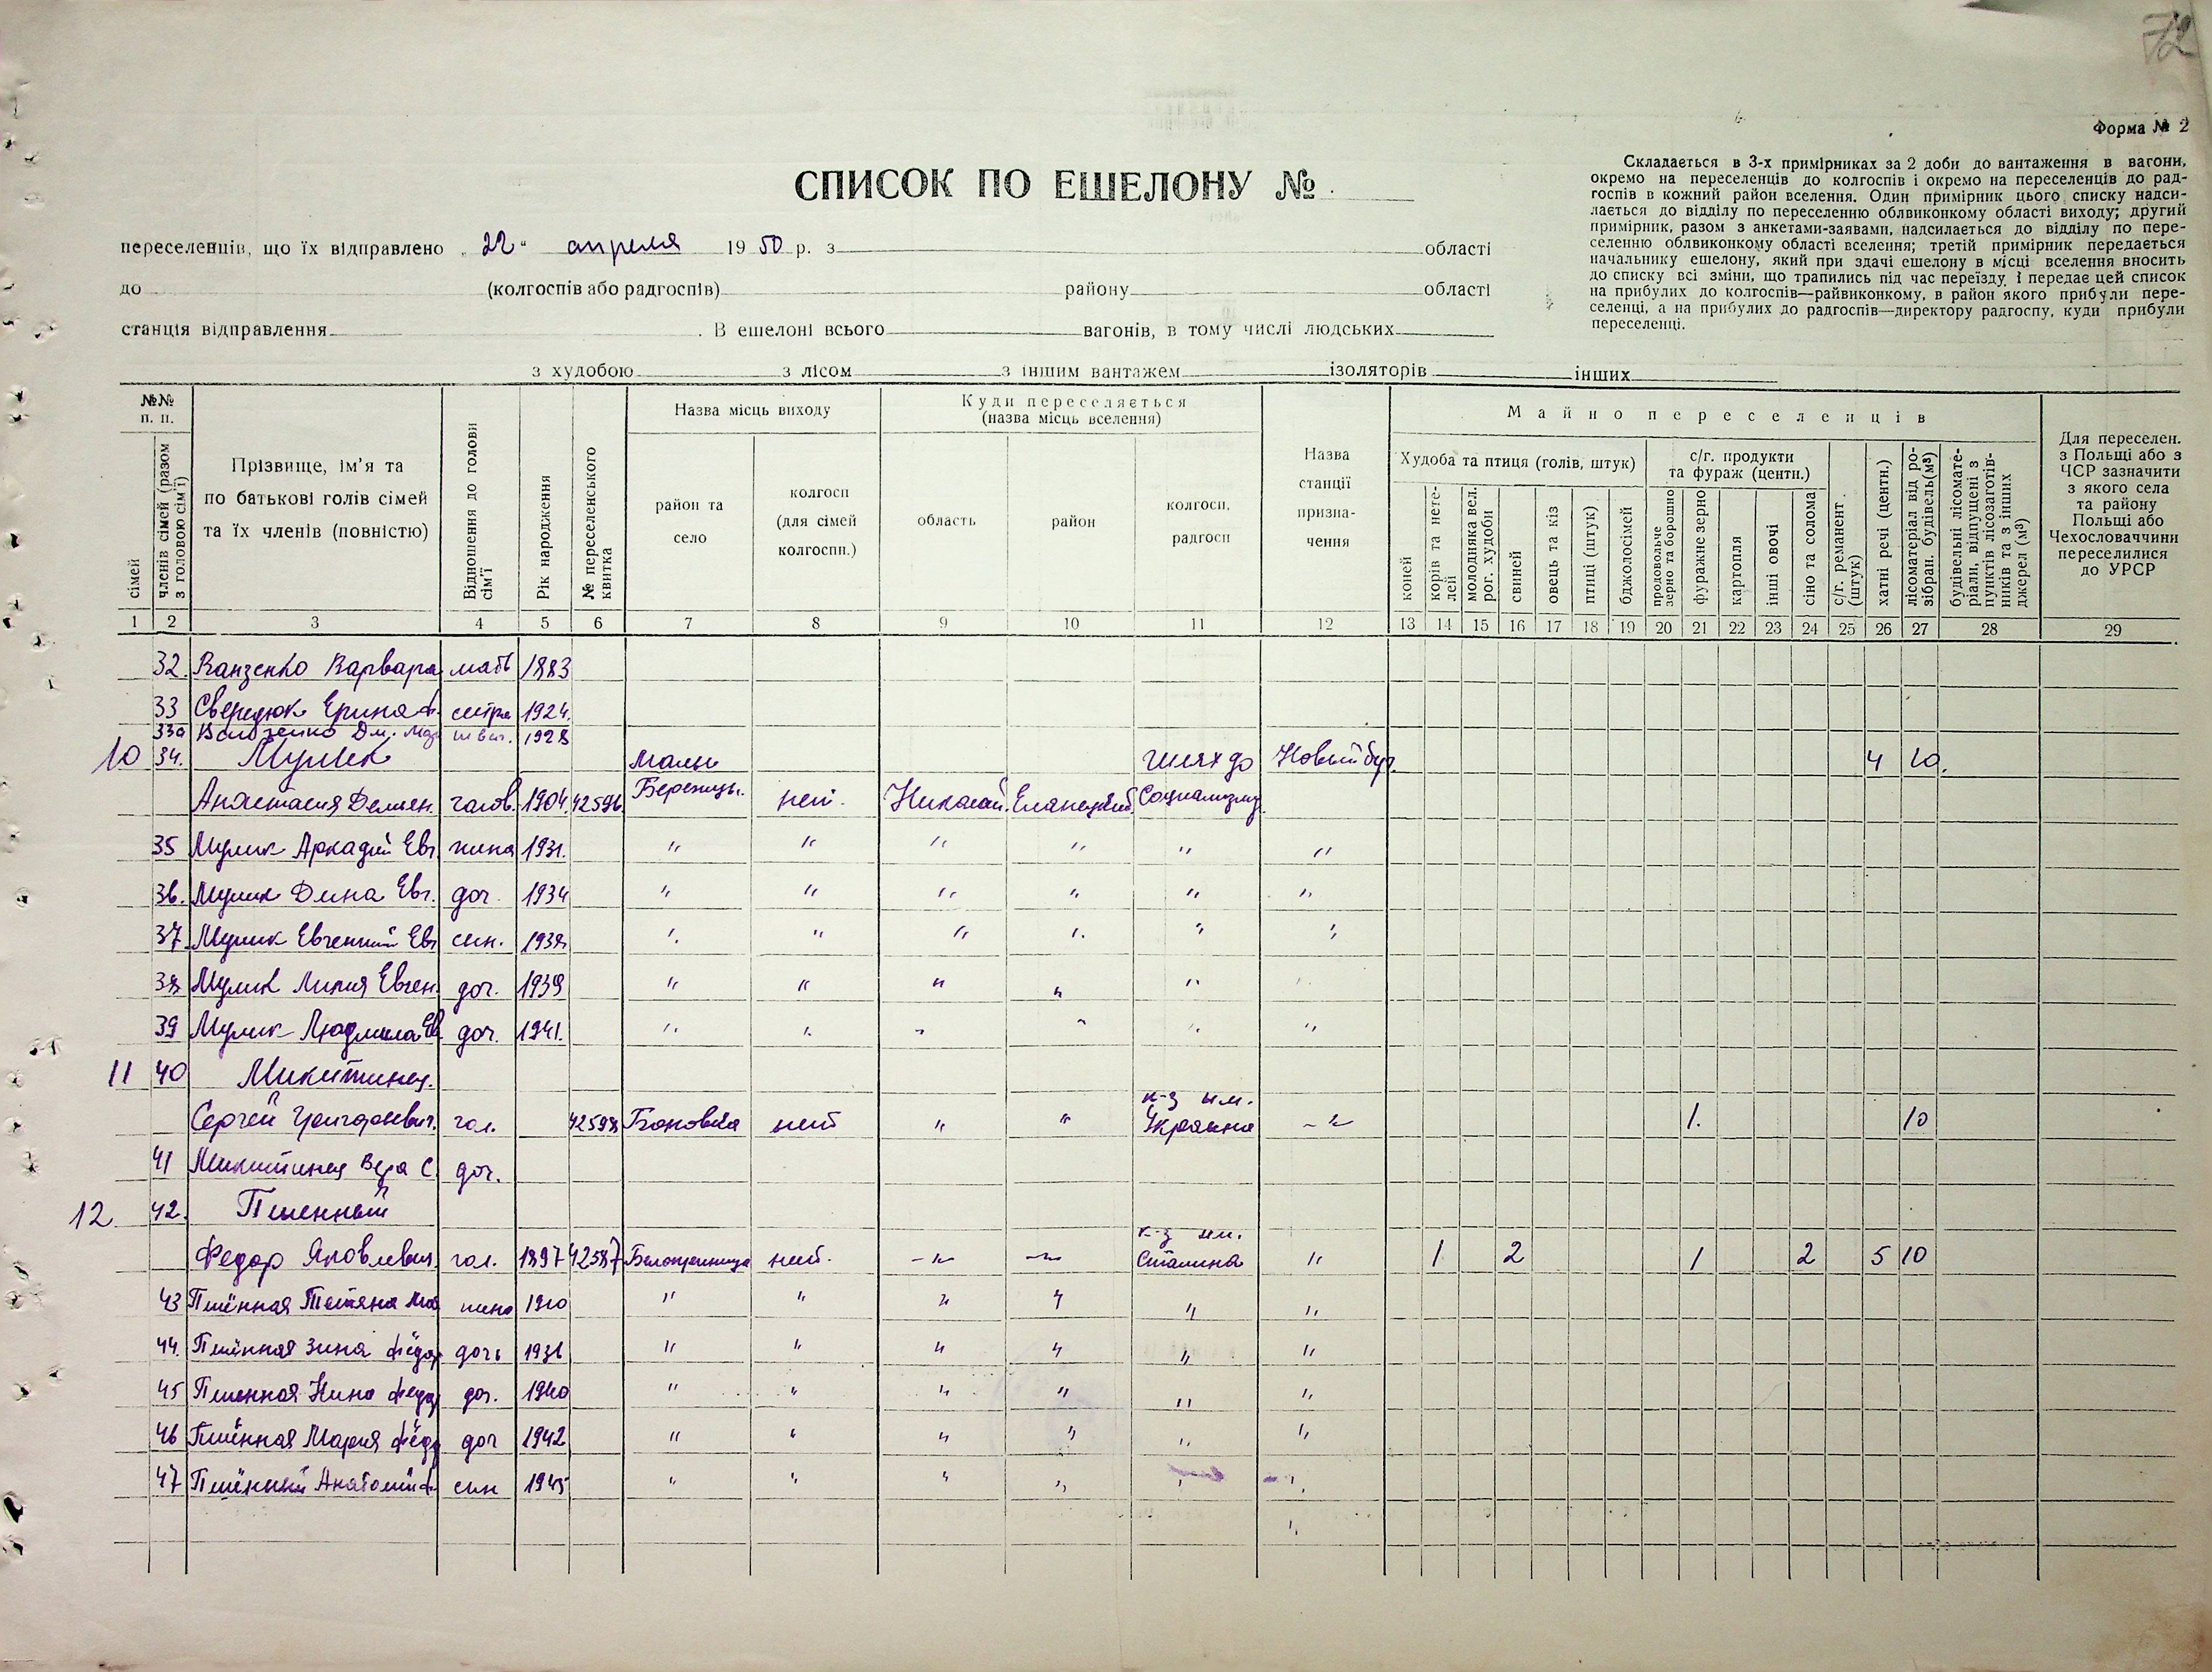 72
Форма № 2
СПИСОК ПО ЕШЕЛОНУ №
Складається в 3-х примірниках за 2 доби до вантаження в вагони,
окремо на переселенців до колгоспів і окремо на переселенців до рад-
госпів в кожний район вселення. Один примірник цього списку надси-
лається до відділу по переселенню облвиконкому області виходу; другий
примірник, разом з анкетами-заявами, надсилається до відділу по пере-
селенню облвиконкому області вселення; третій примірник передається
начальнику ешелону, який при здачі ешелону в місці вселення вносить
до списку всі зміни, що трапились під час переїзду і передає цей список
на прибулих до колгоспів—райвиконкому, в район якого прибули пере-
селенці, а на прибулих до радгоспів—директору радгоспу, куди прибули
переселенці.
переселенців, що їх відправлено „22“ апреля 1950 р. з області
до (колгоспів або радгоспів) району області
станція відправлення . В ешелоні всього вагонів, в тому числі людських
з худобою з лісом з іншим вантажем ізоляторів інших
№№ п. п.
сімей
членів сімей (разом з головою сім'ї)
Прізвище, ім'я та
по батькові голів сімей
та їх членів (повністю)
Відношення до голови сім'ї
Рік народження
№ переселенського квитка
Назва місць виходу
район та
село
колгосп
(для сімей
колгоспн.)
Куди переселяється
(назва місць вселення)
область
район
колгосп,
радгосп
Назва
станції
призна-
чення
Майно переселенців
Худоба та птиця (голів, штук)
коней
корів та нете-
лей
молодняка вел.
рог. худоби
свиней
овець та кіз
птиці (штук)
бджолосімей
с/г. продукти
та фураж (центн.)
продовольче
зерно та борошно
фуражне зерно
картопля
інші овочі
сіно та солома
с/г. реманент
(штук)
хатні речі (центн.)
лісоматеріал від ро-
зібран. будівель (м³)
будівельні лісомате-
ріали, відпущені з
пунктів лісозаготів-
ників та з інших
джерел (м³)
Для переселен.
з Польщі або з
ЧСР зазначити
з якого села
та району
Польщі або
Чехословаччини
переселилися
до УРСР
1 2 3 4 5 6 7 8 9 10 11 12 13 14 15 16 17 18 19 20 21 22 23 24 25 26 27 28 29
32. Варвара мать 1883
33 Свередюк Ерина Ф. сестра 1924.
33а 1928
10 34. Мулик Малы шлях до Новый буг. 4 10.
Анастасия Демьян. голов. 1904. 42596. нет. Николай. Еланецкий Социализму
35 Мулик Аркадий Евг. 1931. " " " " " "
36. Мулик Дина Евг. доч. 1934 " " " " " "
37. Мулик Евгений Евг син. " " " " " "
38 Мулик Лилия Евген. доч. 1939 " " " " "
39 Мулик Людмила Ев доч. 1941. " " " " " "
11 40 Микитинец. к-з им.
Сергей Григорьевич. гол. 42598 нет " " Украина " 1. 10
41 Микитинец Вера С. доч.
12. 42. Пшенный к-з им.
Федор Яковлевич гол. 1897 42587 Белокриница нет. " " Сталина " 1 2 1 2 5 10
43 Пшённая Тетяна 1910 " " " " " "
44. Пшённая Зина Фёдор дочь 1936 " " " " " "
45 Пшенная Нина Федор доч. 1940 " " " " " "
46 Пшённая Мария Фёдр доч 1942 " " " " " "
47 Пшённый Анатолий Ф. син 1945 " " " " " "